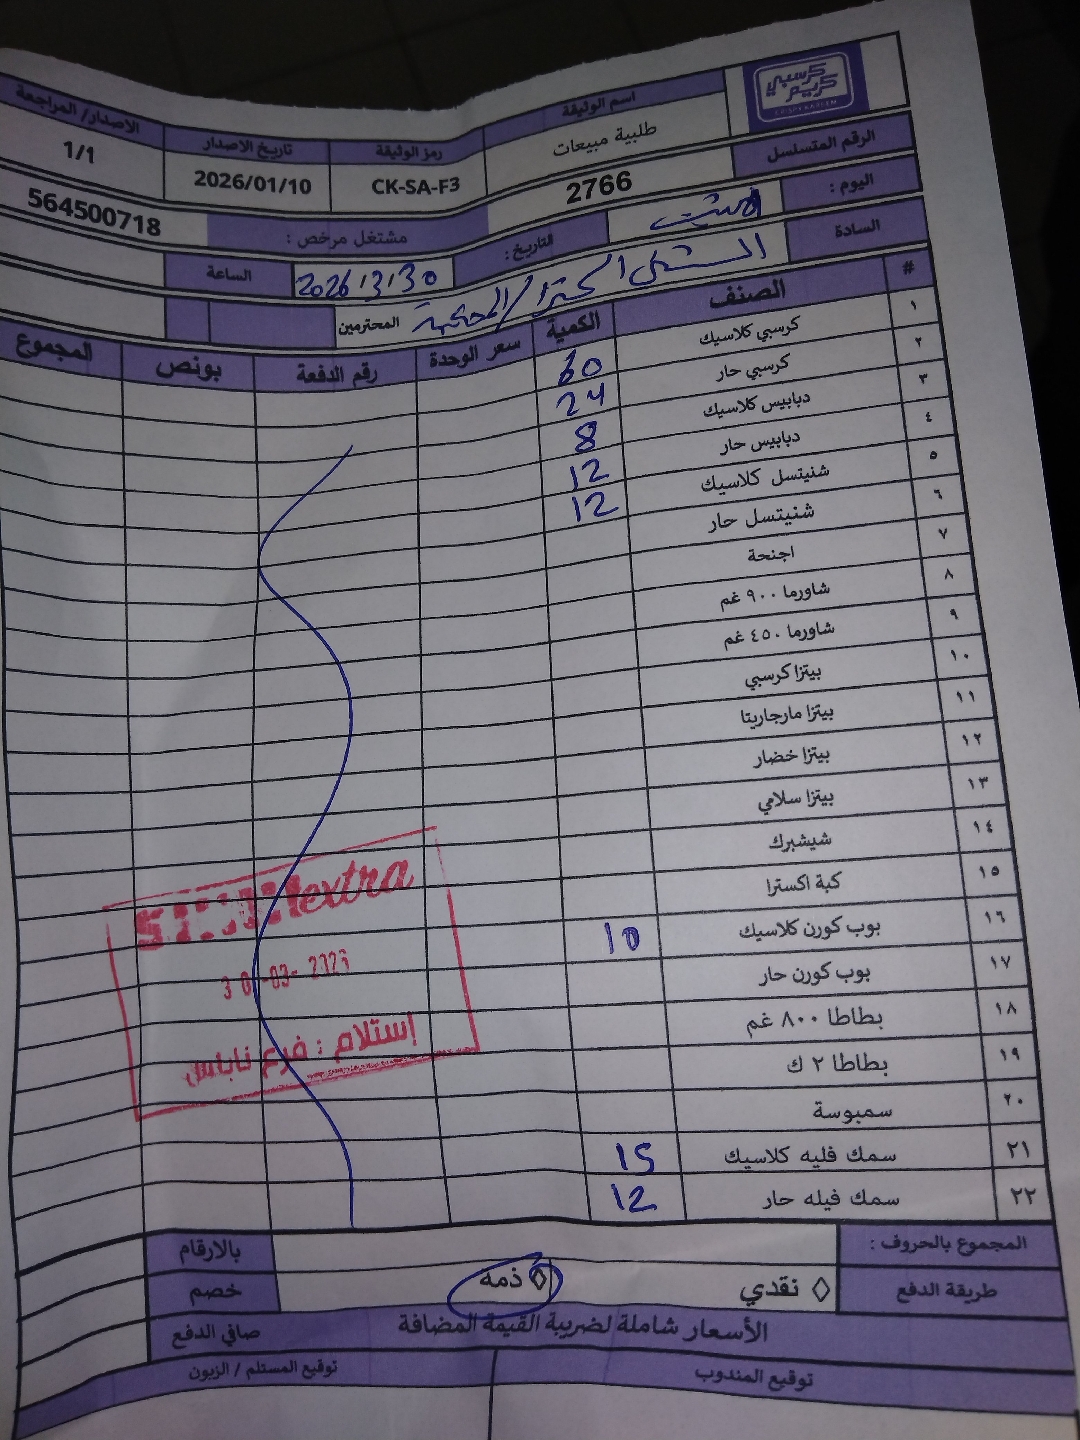 كرسبي كريم
CRISPY KAREEM
اسم الوثيقة رمز الوثيقة تاريخ الاصدار الاصدار/ المراجعة
طلبية مبيعات CK-SA-F3 2026/01/10 1/1
الرقم المتسلسل 2766 مشتغل مرخص : 564500718
اليوم : التاريخ: 2026/3/30 الساعة
السادة الشني اكسترا / المحترمين
# الصنف الكمية سعر الوحدة رقم الدفعة بونص المجموع
١ كرسبي كلاسيك 60
٢ كرسبي حار 24
٣ دبابيس كلاسيك 8
٤ دبابيس حار 12
٥ شنيتسل كلاسيك 12
٦ شنيتسل حار
٧ اجنحة
٨ شاورما ٩٠٠ غم
٩ شاورما ٤٥٠ غم
١٠ بيتزا كرسبي
١١ بيتزا مارجاريتا
١٢ بيتزا خضار
١٣ بيتزا سلامي
١٤ شيشبرك
١٥ كبة اكسترا
١٦ بوب كورن كلاسيك 10
١٧ بوب كورن حار
١٨ بطاطا ٨٠٠ غم
١٩ بطاطا ٢ ك
٢٠ سمبوسة
٢١ سمك فليه كلاسيك 15
٢٢ سمك فيله حار 12
extra
30-03-2026
إستلام : فرع نابلس
المجموع بالحروف : بالارقام
طريقة الدفع ◊ نقدي ◊ ذمة خصم
الأسعار شاملة لضريبة القيمة المضافة صافي الدفع
توقيع المندوب توقيع المستلم / الزبون